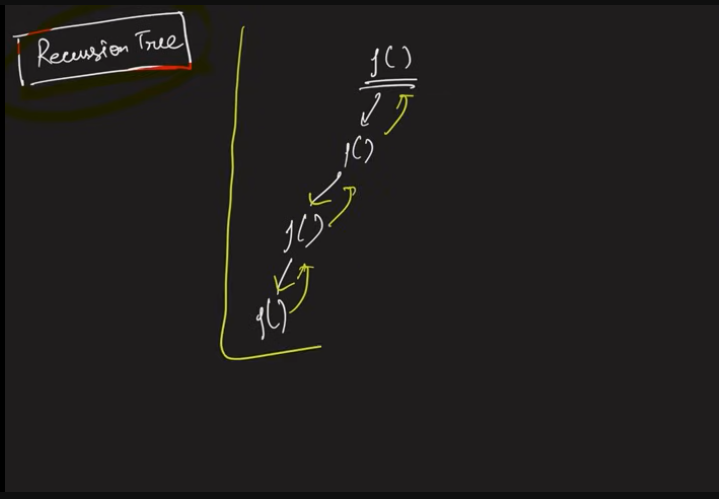 Recursion Tree
f()
f()
f()
f()